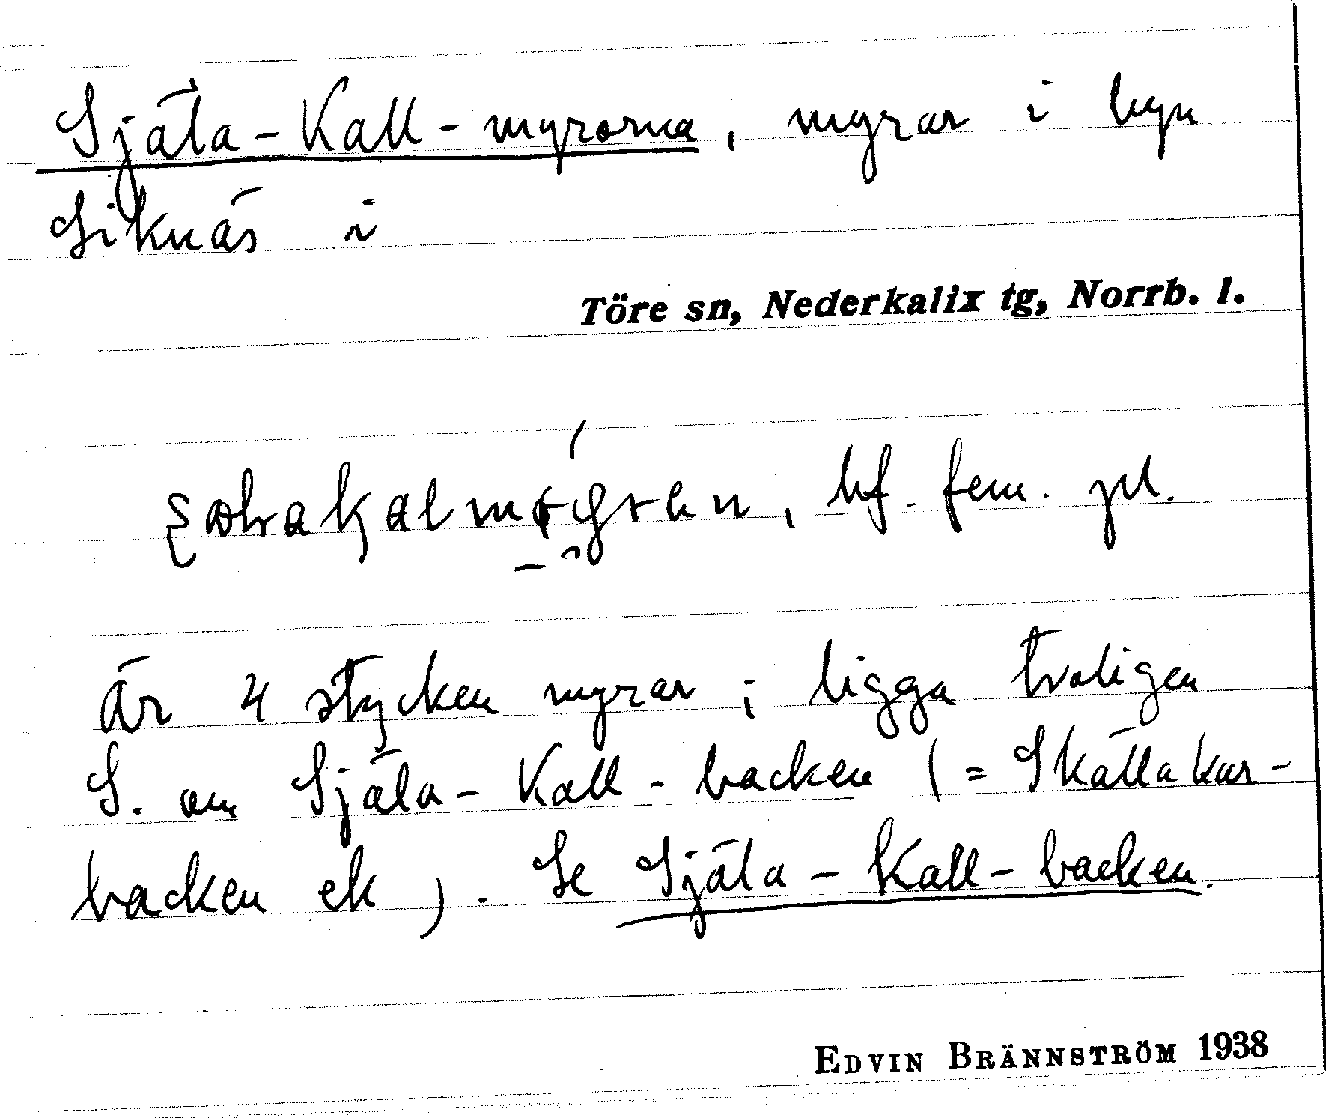 Själa-Kall-myrorna, myrar i byn
Siknäs i
Töre sn, Nederkalix tg, Norrb. l.
bf. fem. pl.
Är 4 stycken myrar; ligga troligen
S. om Själa-Kall-backen (= Skällakar-
backen ek). Se Själa-Kall-backen.
EDVIN BRÄNNSTRÖM 1938